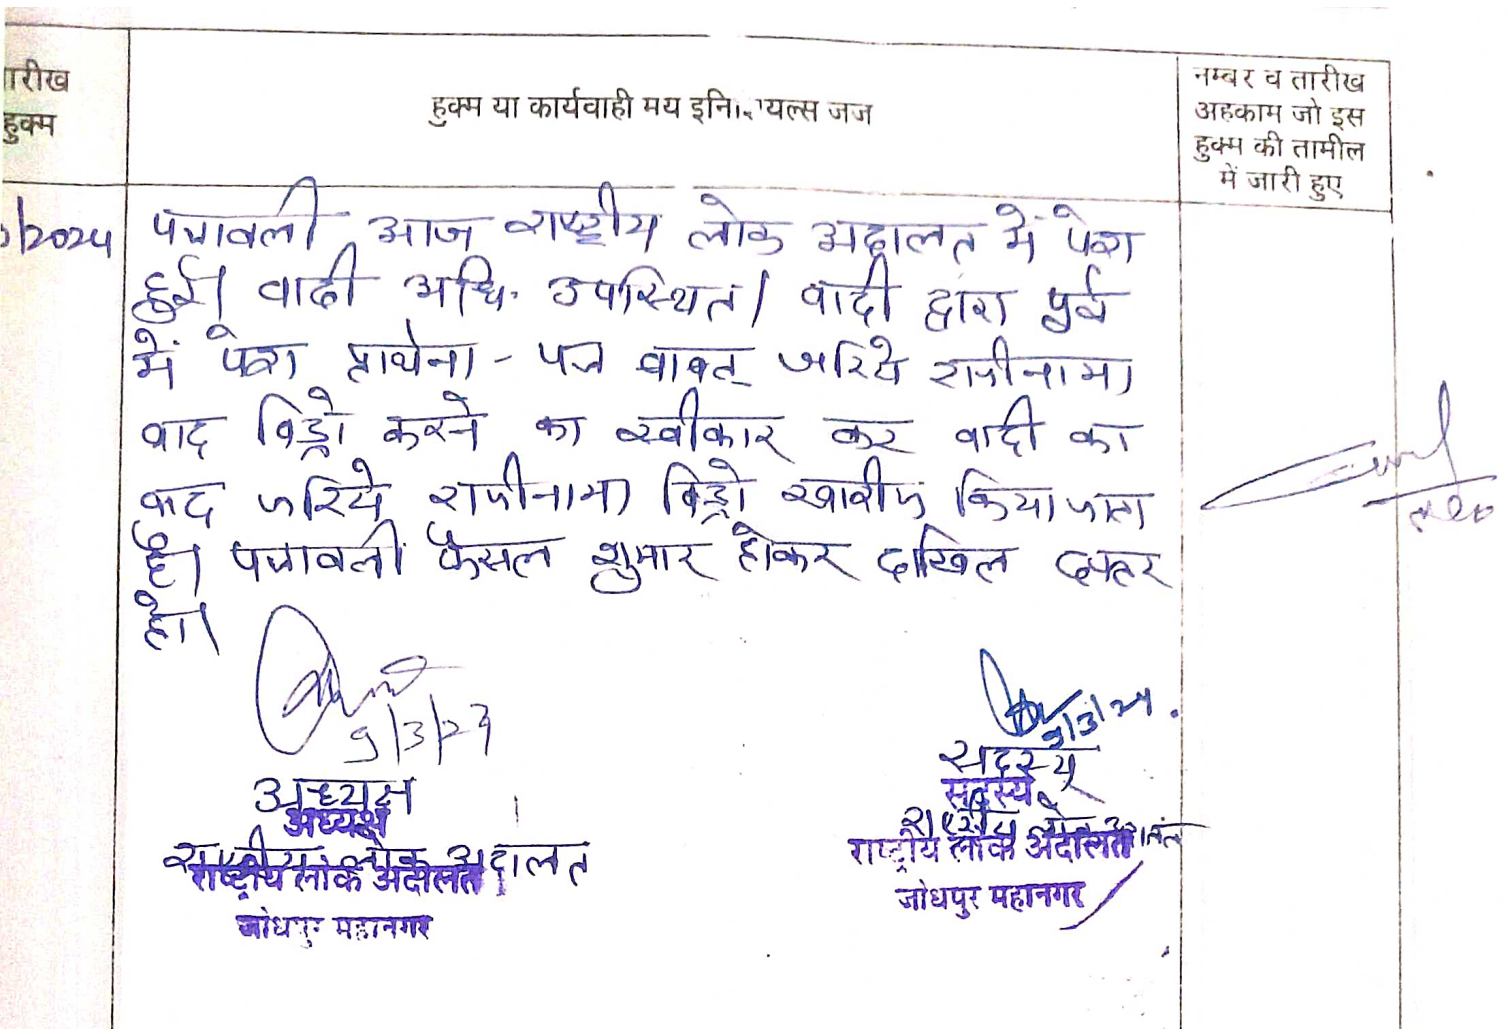 तारीख
हुक्म
हुक्म या कार्यवाही मय इनिशियल्स जज
नम्बर व तारीख
अहकाम जो इस
हुक्म की तामील
में जारी हुए
/2024 पत्रावली आज राष्ट्रीय लोक अदालत में पेश
हुई। वादी अधि. उपस्थित। वादी द्वारा पूर्व
में पेश प्रार्थना-पत्र बाबत् जरिये राजीनामा
वाद विड्रो करने का स्वीकार कर वादी का
वाद जरिये राजीनामा विड्रो खारीज किया जाता
है। पत्रावली फैसल शुमार होकर दाखिल दफ्तर
हो।
9/3/24
अध्यक्ष
अध्यक्ष
राष्ट्रीय लोक अदालत
राष्ट्रीय लोक अदालत
जोधपुर महानगर
9/3/24.
सदस्य
सदस्य
राष्ट्रीय लोक अदालत
राष्ट्रीय लोक अदालत
जोधपुर महानगर